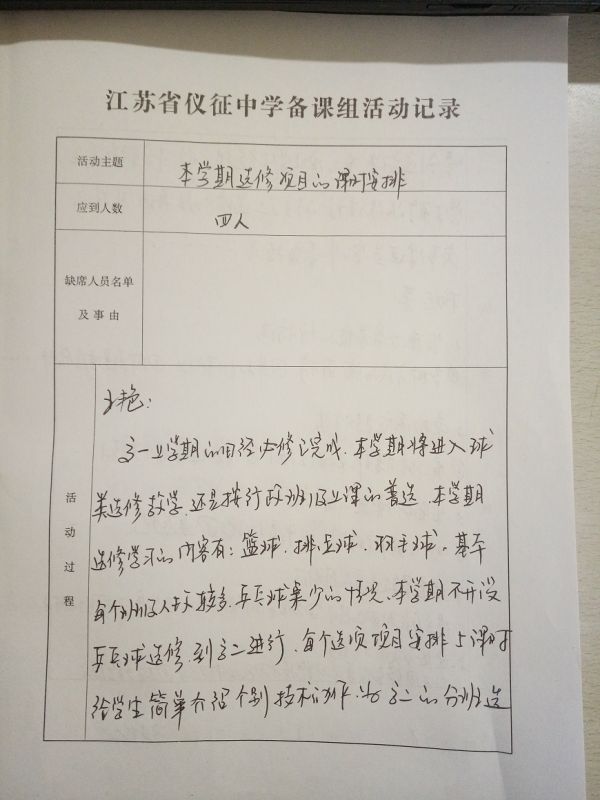 江苏省仪征中学备课组活动记录
活动主题
本学期选修项目的课时安排
应到人数
四人
缺席人员名单
及事由
活动过程
王艳：
高一上学期的田径必修已完成，本学期将进入球
类选修教学，还是按行政班级上课的普选，本学期
选修学习的内容有：篮球、排球、羽毛球。基于
每个班级人数较多，乒乓球桌少的情况，本学期不开设
乒乓球选修，到高二进行，每个选项项目安排5课时
给学生简单介绍个别技术动作，为高二的分班选